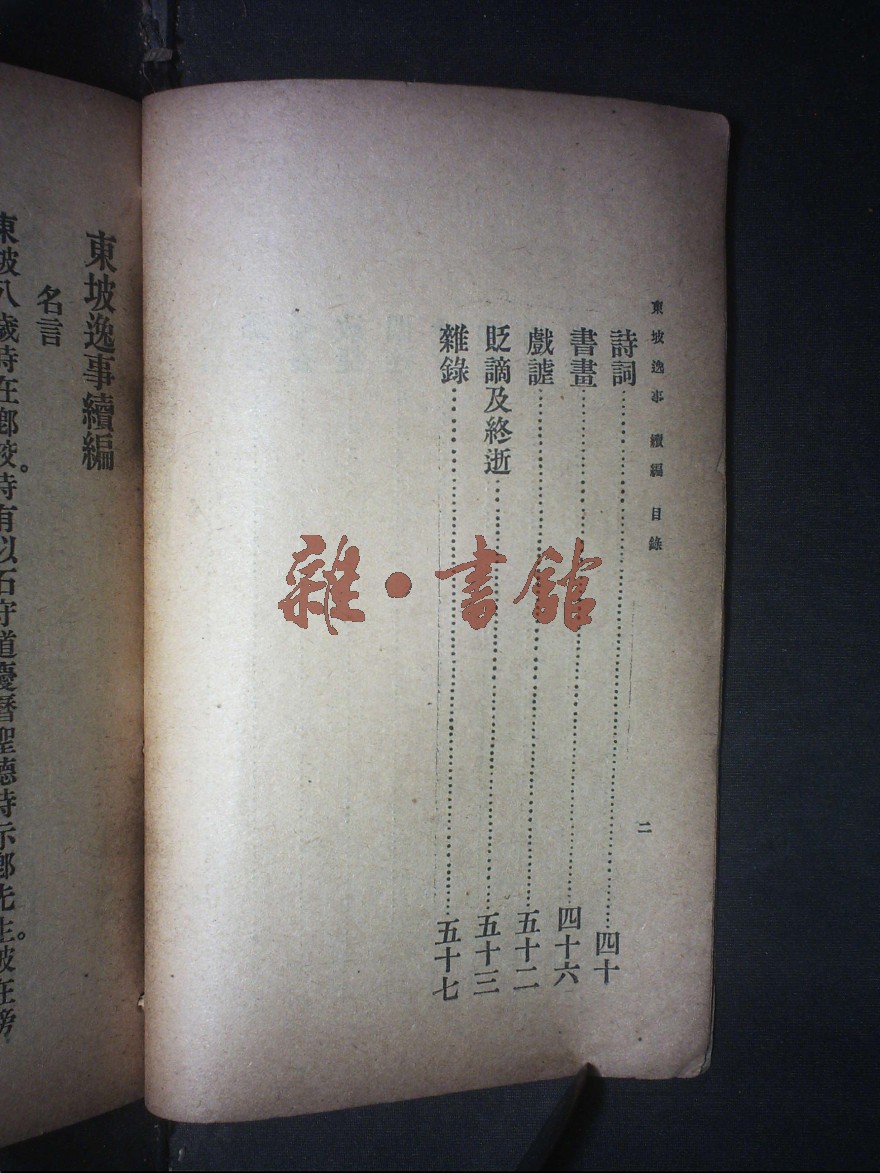 東坡逸事 續編 目錄 二
詩詞……四十
書畫……四十六
戲謔……五十二
貶謫及終逝……五十三
雜錄……五十七
雜·書館
東坡逸事續編
名言
東坡八歲時在鄉校。時有以石守道慶曆聖德詩示鄉先生。坡在旁